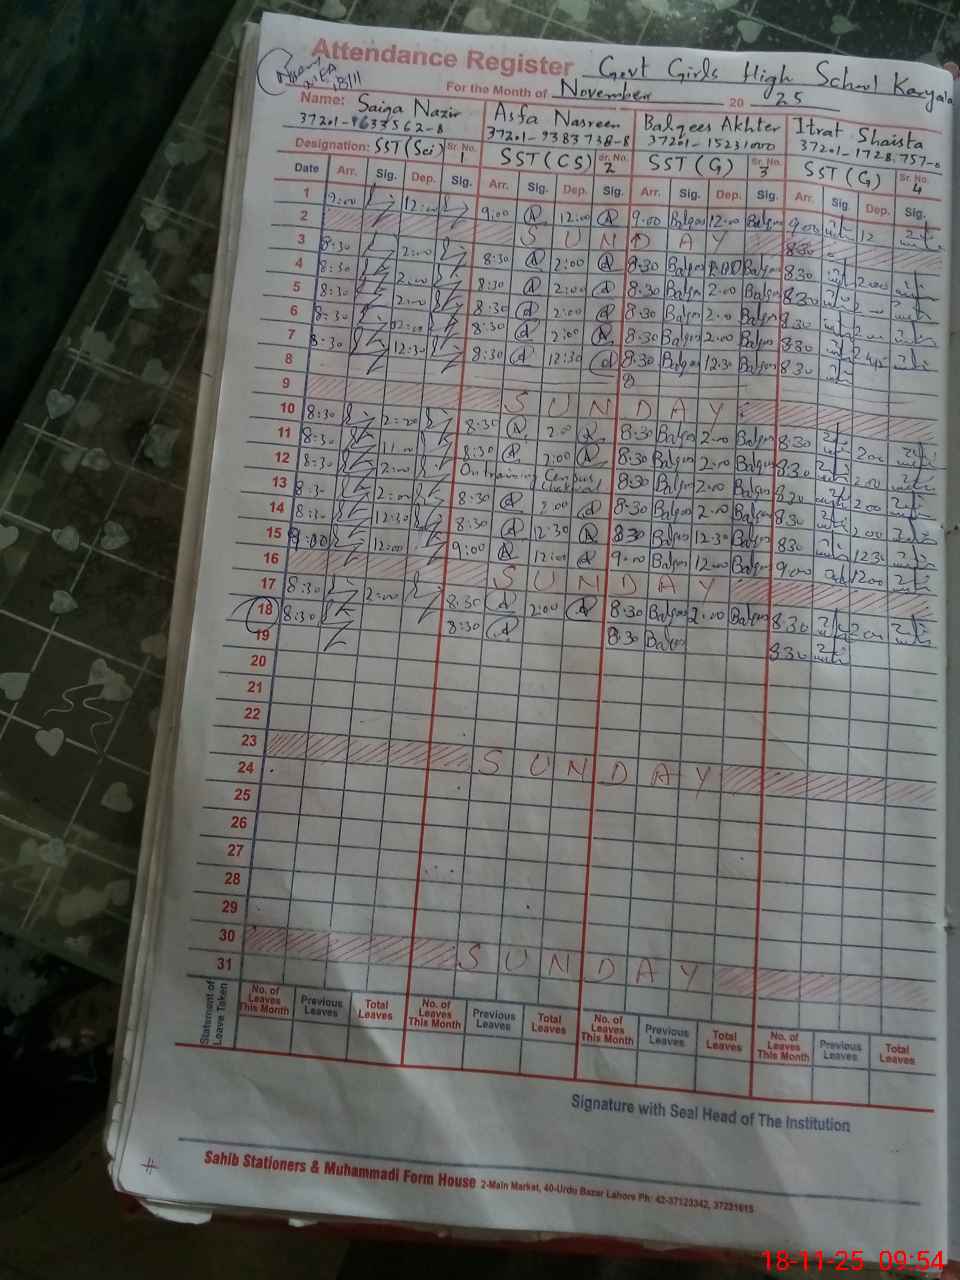 Attendance Register Govt Girls High School Karyala
18/11
For the Month of November 2025
Name: Saiqa Nazir Asfa Nasreen Balqees Akhter Itrat Shaista
37201-9633562-8 37201-9383738-8 37201-1523
Designation: SST (Sci) Sr. No. 1 SST (CS) Sr. No. 2 SST (G) Sr. No. 3 SST (G) Sr. No. 4
Date Arr. Sig. Dep. Sig. Arr. Sig. Dep. Sig. Arr. Sig. Dep. Sig. Arr. Sig. Dep. Sig.
1 9:00 12:00 9:00 12:00 9:00 Balqees 12:00 Balqees 9:00 12
2 SUNDAY
3 8:30 2:00 8:30 2:00 8:30 Balqees 2:00 Balqees 8:30 2:00
4 8:30 2:00 8:30 2:00 8:30 Balqees 2:00 Balqees 8:30
5 8:30 2:00 8:30 2:00 8:30 Balqees 2:00 Balqees 8:30
6 8:30 2:00 8:30 2:00 8:30 Balqees 2:00 Balqees 8:30
7 8:30 12:30 8:30 12:30 8:30 Balqees 12:30 Balqees 8:30
8
9 SUNDAY
10 8:30 2:00 8:30 2:00 8:30 Balqees 2:00 Balqees 8:30 2:00
11 8:30 8:30 2:00 8:30 Balqees 2:00 Balqees 8:30 2:00
12 8:30 2:00 On training Campus Chakwal 8:30 Balqees 2:00 Balqees 8:30 2:00
13 8:30 2:00 8:30 2:00 8:30 Balqees 2:00 Balqees 8:30 2:00
14 8:30 12:30 8:30 12:30 8:30 Balqees 12:30 Balqees 8:30 12:30
15 9:00 12:00 9:00 12:00 9:00 Balqees 12:00 Balqees 9:00 12:00
16 SUNDAY
17 8:30 2:00 8:30 2:00 8:30 Balqees 2:00 Balqees 8:30 2:00
18 8:30 8:30 8:30 Balqees 8:30
19
20
21
22
23 SUNDAY
24
25
26
27
28
29
30 SUNDAY
31
Statement of Leave Taken No. of Leaves This Month Previous Leaves Total Leaves No. of Leaves This Month Previous Leaves Total Leaves No. of Leaves This Month Previous Leaves Total Leaves No. of Leaves This Month Previous Leaves Total Leaves
Signature with Seal Head of The Institution
Sahib Stationers & Muhammadi Form House 2-Main Market, 40-Urdu Bazar Lahore Ph: 42-37123342, 37231615
18-11-25 09:54